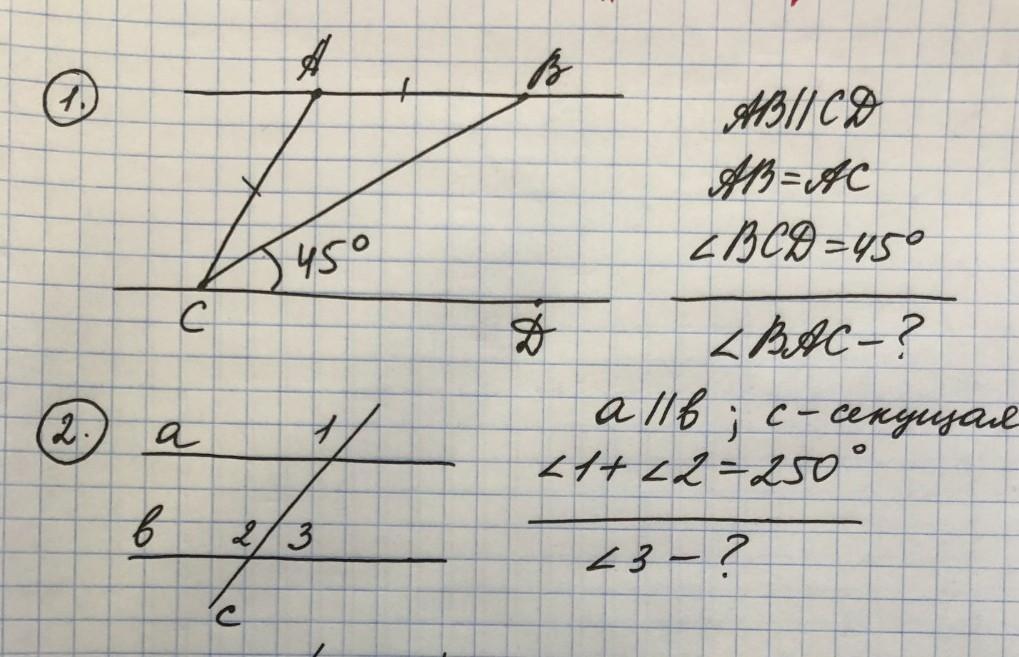 1.
A
B
45°
C
D
AB||CD
AB=AC
∠BCD=45°
∠BAC-?
2.
a
1
в
2 3
c
a||в ; c-секущая
∠1+∠2=250°
∠3-?